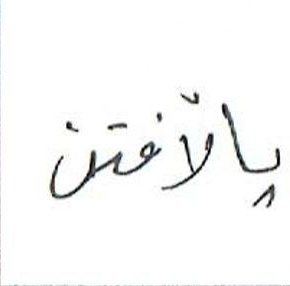 پاڵافتن